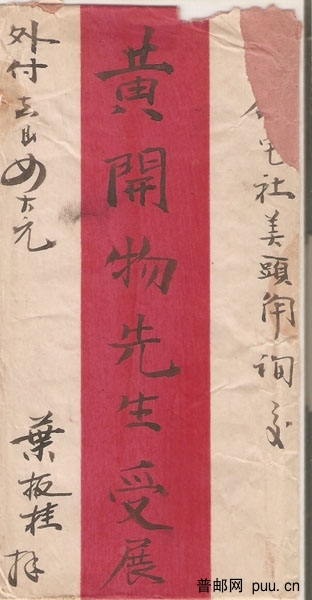 宅社美頭角詢交
黃開物先生受展
外付大元
葉板桂拜
普邮网 puu.cn